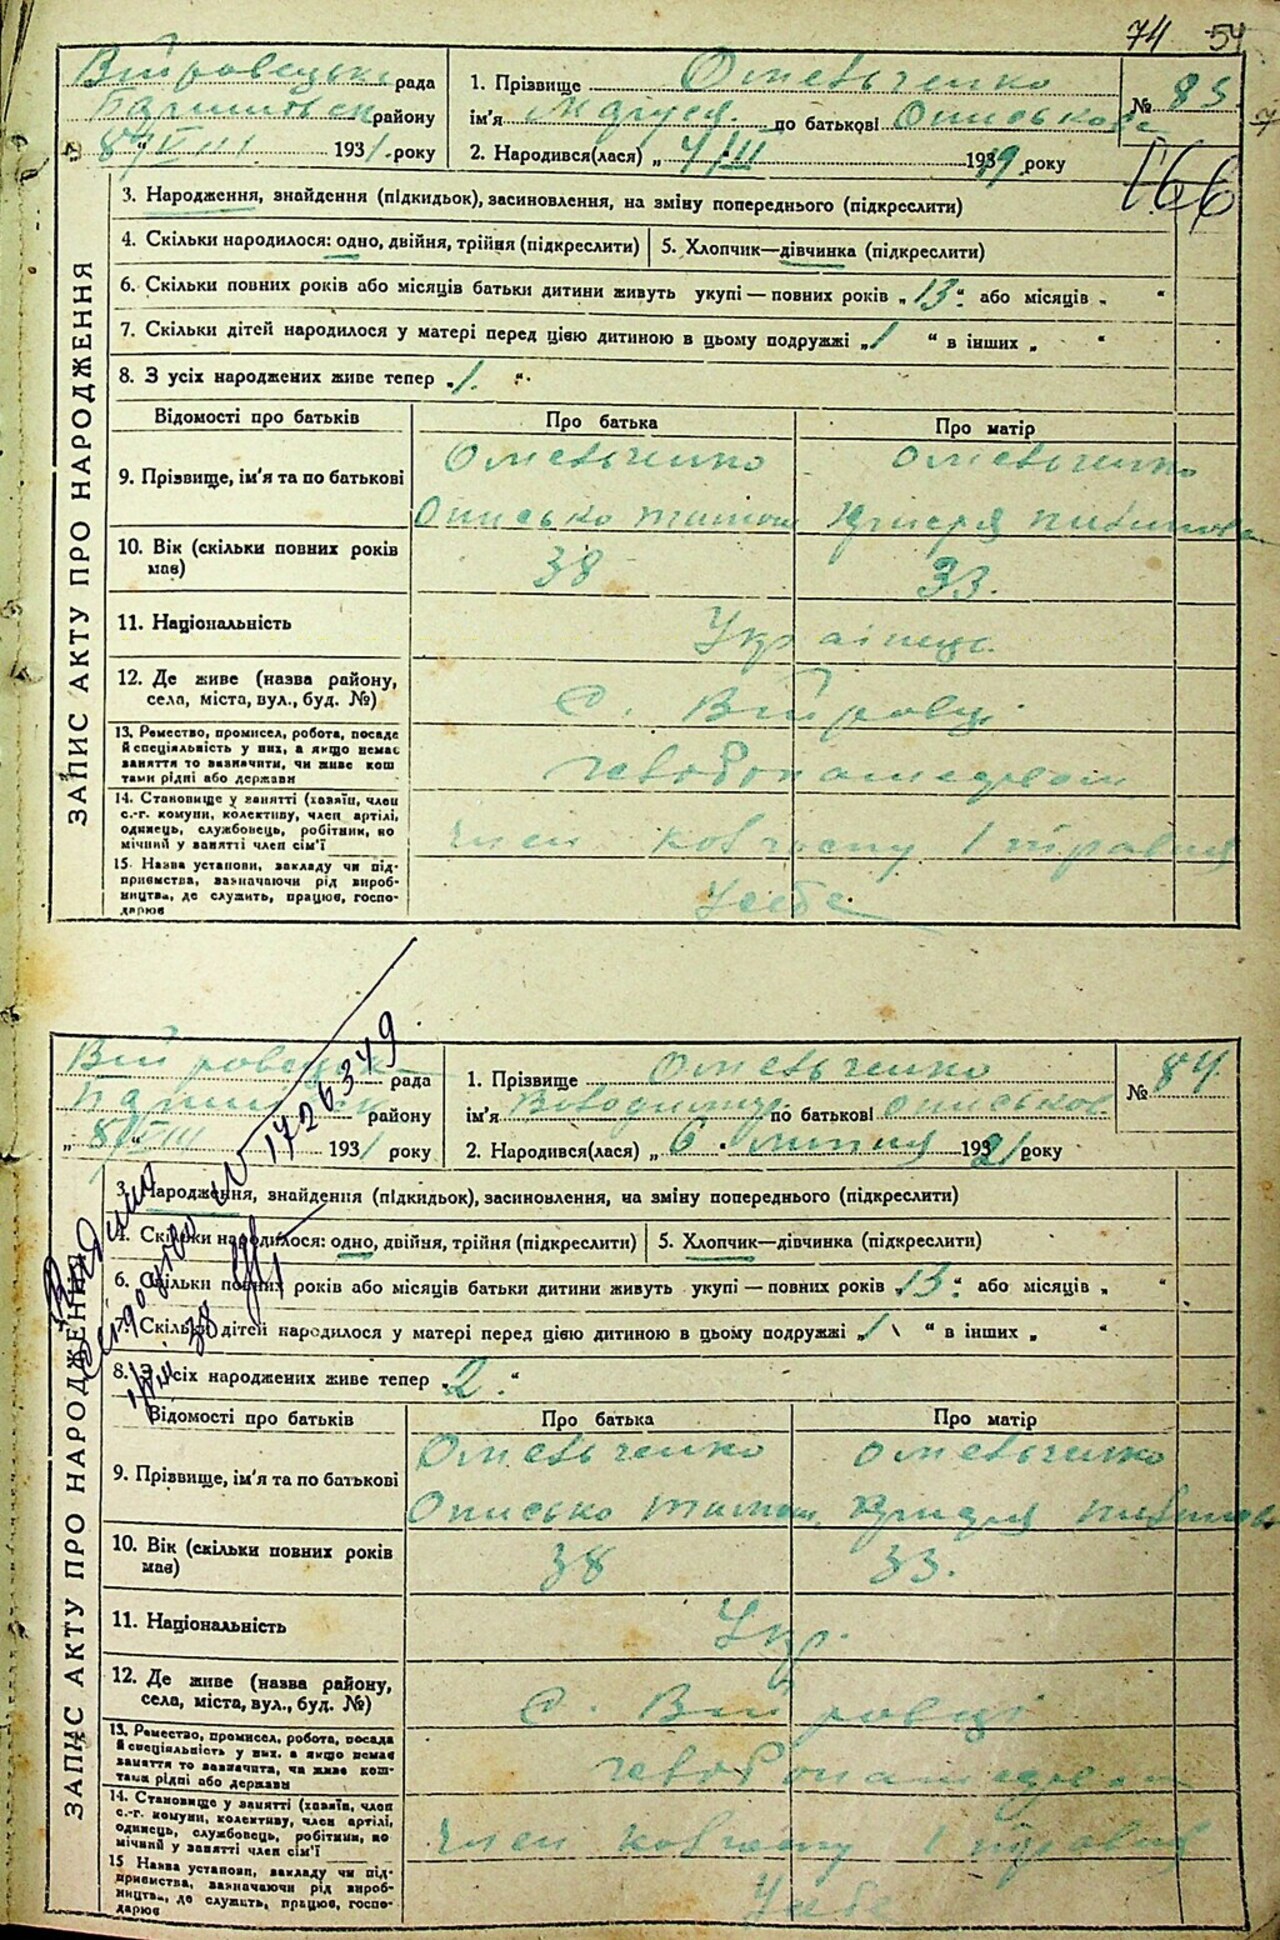 74 54
Війтовецька рада
району
8/VIII 1931 року
1. Прізвище Омельченко
ім'я Маруся по батькові Ониськова
2. Народився(лася) „ 4/III 1919 року
№ 83
166
ЗАПИС АКТУ ПРО НАРОДЖЕННЯ
3. Народження, знайдення (підкидьок), засиновлення, на зміну попереднього (підкреслити)
4. Скільки народилося: одно, двійня, трійня (підкреслити) 5. Хлопчик—дівчинка (підкреслити)
6. Скільки повних років або місяців батьки дитини живуть укупі — повних років „ 13 “ або місяців „ “
7. Скільки дітей народилося у матері перед цією дитиною в цьому подружжі „ 1 “ в інших „ “
8. З усіх народжених живе тепер „ 1. “
Відомості про батьків Про батька Про матір
9. Прізвище, ім'я та по батькові Омельченко Омельченко
Онисько
10. Вік (скільки повних років має) 38 33.
11. Національність Українець.
12. Де живе (назва району, села, міста, вул., буд. №) с. Війтовці
13. Ремество, промисел, робота, посада
й спеціяльність у них, а якщо немає
заняття то зазначити, чи живе кош
тами рідні або держави
хлібопашедство
14. Становище у занятті (хазяїн, член
с.-г. комуни, колективу, член артілі,
одинець, службовець, робітник, по
мічний у занятті член сім'ї
член колгоспу
15. Назва установи, закладу чи під-
приємства, зазначаючи рід вироб-
ництва, де служить, працює, госпо-
дарює
У себе
Війтовецька рада
району
„ 8/VIII 1931 року
1. Прізвище Омельченко
ім'я Володимир по батькові Ониськов.
2. Народився(лася) „ 6 “ липня 1921 року
№ 84
№ 1726349
ЗАПИС АКТУ ПРО НАРОДЖЕННЯ
3. Народження, знайдення (підкидьок), засиновлення, на зміну попереднього (підкреслити)
4. Скільки народилося: одно, двійня, трійня (підкреслити) 5. Хлопчик—дівчинка (підкреслити)
6. Скільки повних років або місяців батьки дитини живуть укупі — повних років 13 “ або місяців „ “
7. Скільки дітей народилося у матері перед цією дитиною в цьому подружжі „ 1 “ в інших „ “
8. З усіх народжених живе тепер „ 2. “
Відомості про батьків Про батька Про матір
9. Прізвище, ім'я та по батькові Омельченко Омельченко
Онисько
10. Вік (скільки повних років має) 38 33.
11. Національність Укр.
12. Де живе (назва району, села, міста, вул., буд. №) с. Війтовці
13. Ремество, промисел, робота, посада
й спеціяльність у них, а якщо немає
заняття то зазначити, чи живе кош-
тами рідні або держави
хлібопашедство
14. Становище у занятті (хазяїн, член
с.-г. комуни, колективу, член артілі,
одинець, службовець, робітник, по
мічний у занятті член сім'ї
член колгоспу
15 Назва установи, закладу чи під-
приємства, зазначаючи рід вироб-
ництва, де служить, працює, госпо-
дарює
У себе